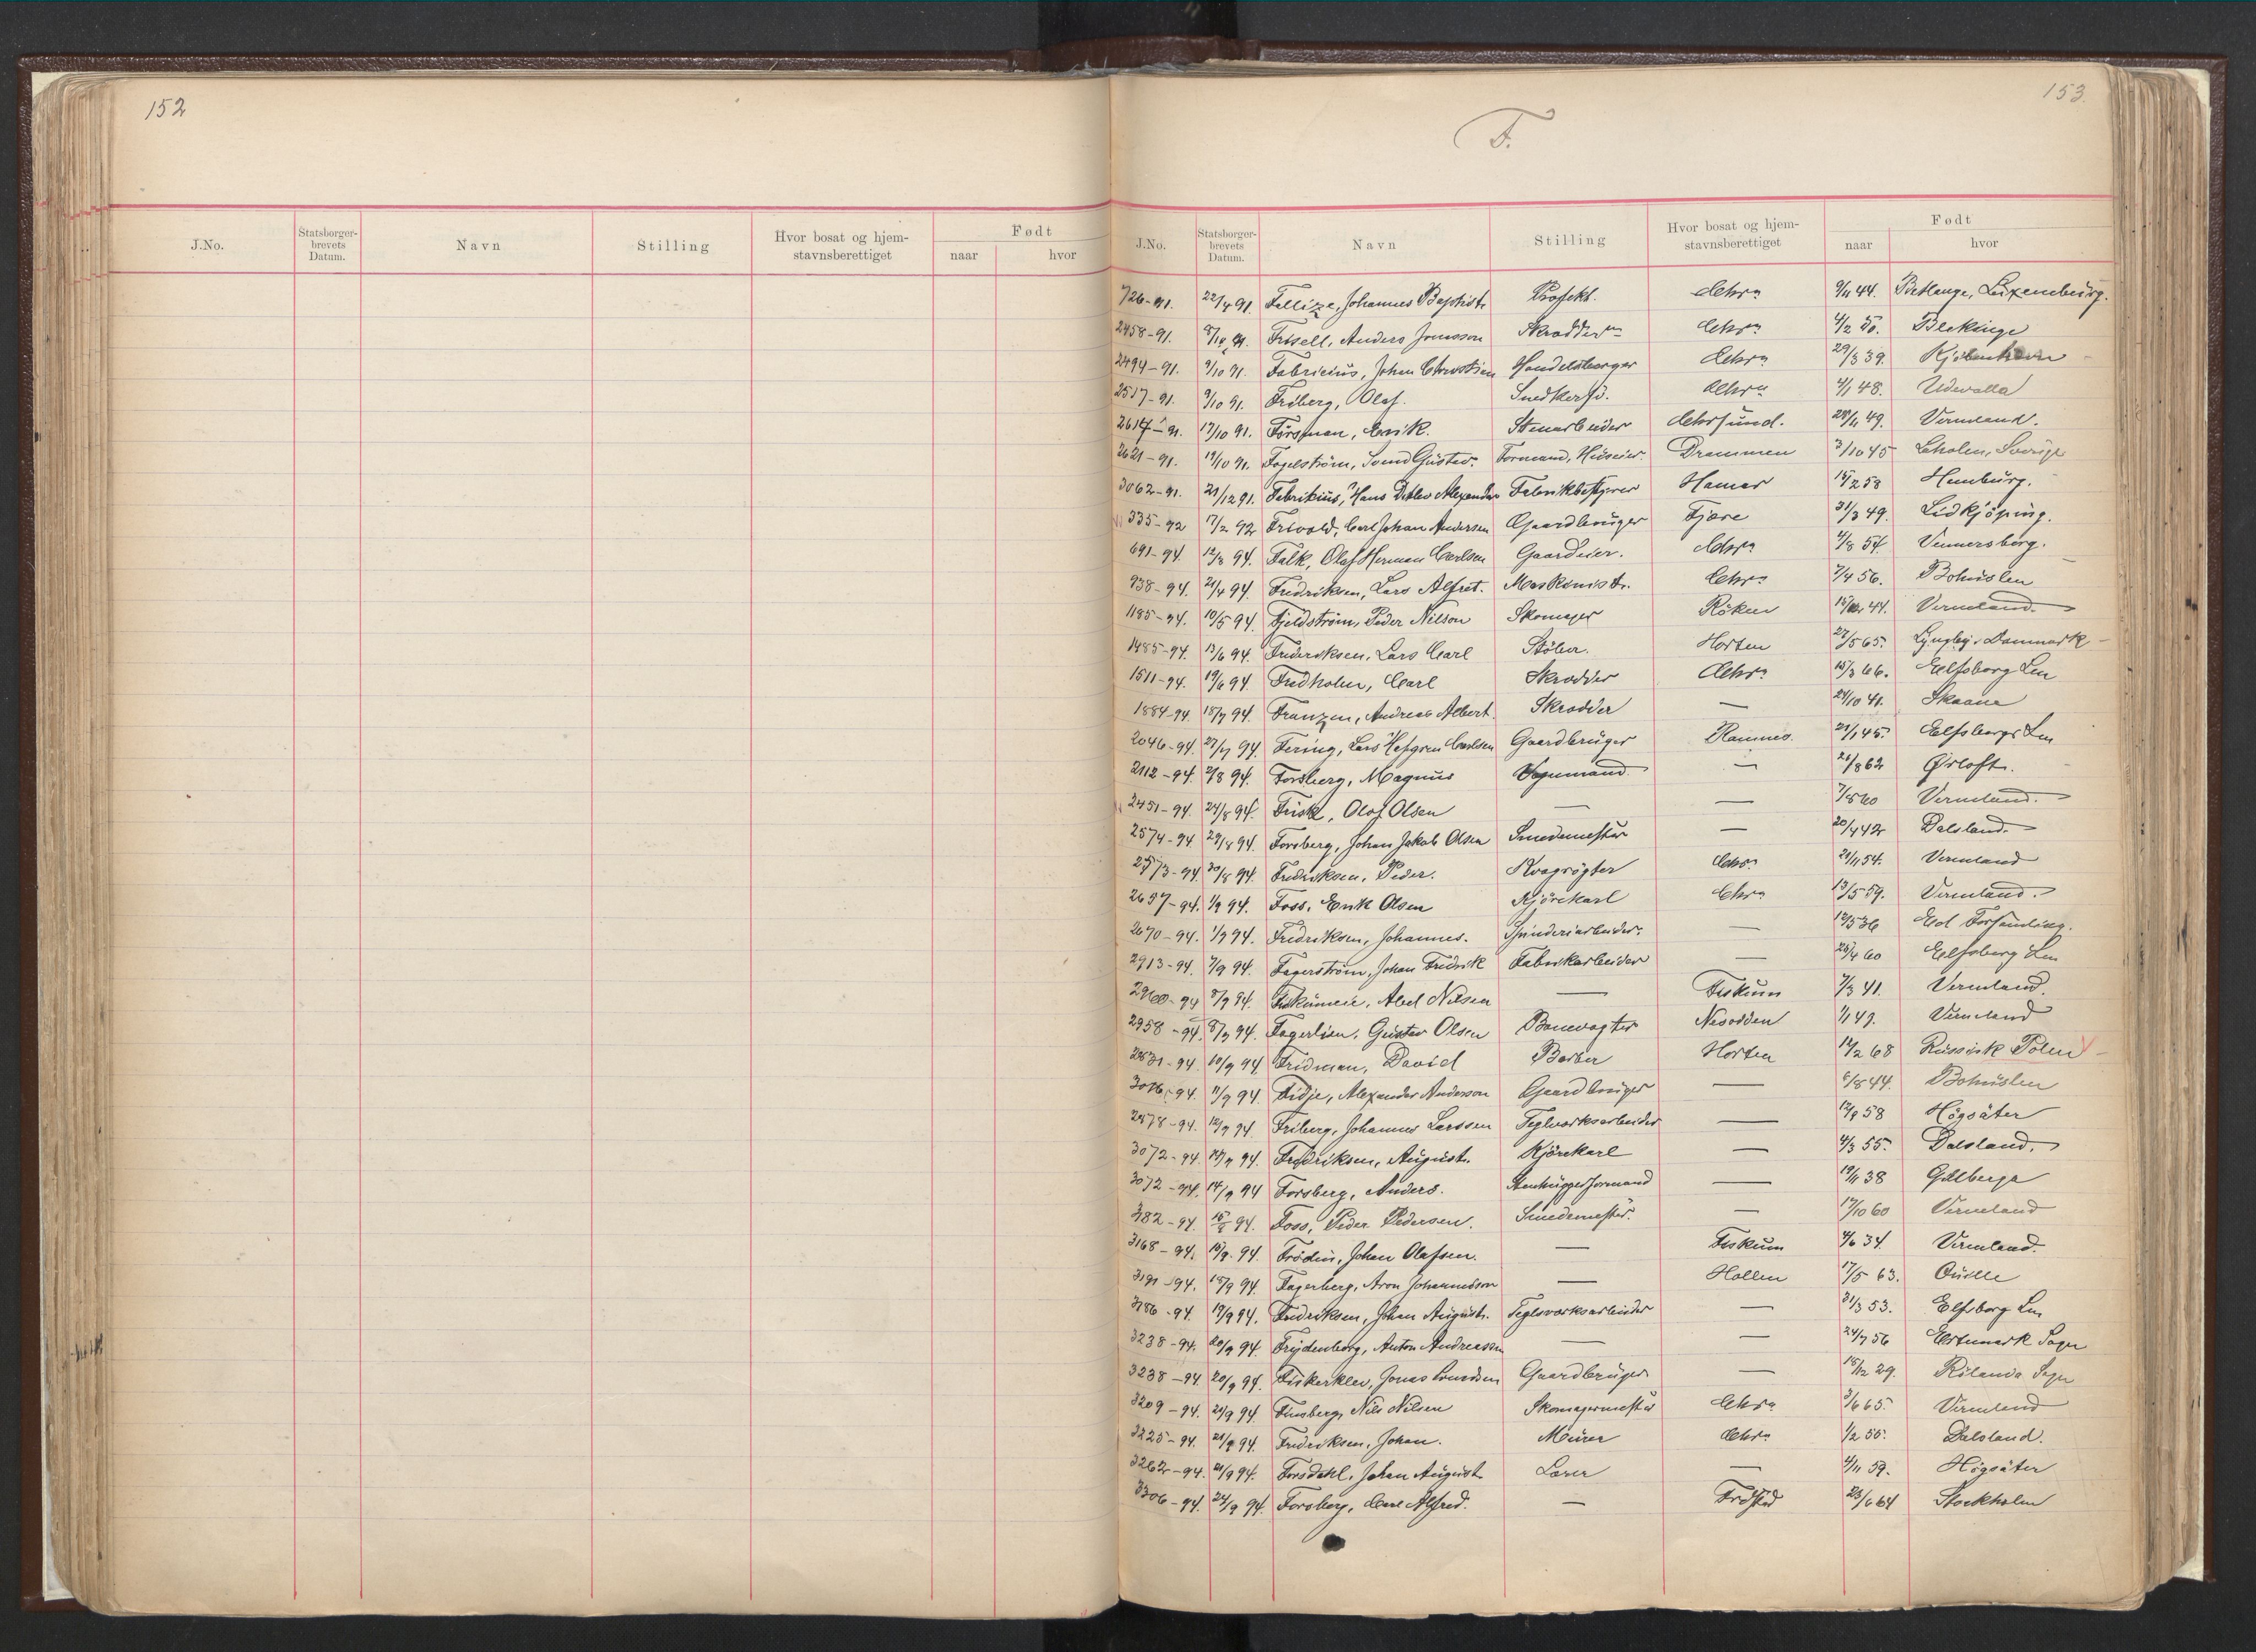 152
J.No.
Statsborger-
brevets
Datum.
Navn
Stilling
Hvor bosat og hjem-
stavnsberettiget
Født
naar
hvor
153.
F.
J.No.
Statsborger-
brevets
Datum.
Navn
Stilling
Hvor bosat og hjem-
stavnsberettiget
Født
naar
hvor
726-91. 22/4 91. Fallize, Johannes Baptist Præfekt. Chra 9/11 44. Bettange, Luxemburg.
2458-91. Frisell, Anders Jonsson Skrædder Chra 4/2 50. Blekinge
2494-91. 9/10 91. Fabricius, Johan Christian Handelsborger Chra 29/3 39. Kjøbenhavn
2517-91. 9/10 91. Friberg, Olaf. Snedker Chra 4/1 48. Udevalla
2617-91. 17/10 91. Forsman, Erik. Stenarbeider Chrsund. 28/11 49. Vermland.
2621-91. 19/10 91. Fogelström, Svend Gustav. Formand, Huseier. Drammen 3/10 45 Sverige
3062-91. 21/12 91. Fabrikius, Hans Detlev Alexander Fabrikbestyrer Hamar 15/2 58 Hamburg.
335-92 17/2 92 Frivold, Carl Johan Andersen Gaardbruger Fjære 31/3 49. Lidkjöping.
691-94. 12/3 94. Falk, Olaf Herman Carlsen Gaardeier. Chra 4/8 54. Vennersborg.
938-94. 21/4 94. Fredriksen, Lars Alfret. Maskinist. Chra 7/4 56. Bohuslen
1185-94. 10/5 94. Fjeldstrøm, Peder Nilson Skomager Röken 44. Vermland.
1485-94. 13/6 94. Frederiksen, Lars Carl Støber. Horten 27/5 65. Lyngby, Danmark
1511-94. 19/6 94. Fredholm, Carl Skrædder Chra 15/3 66. Elfsborg Len
1884-94. 18/7 94. Franzen, Andreas Albert. Skrædder — 24/10 41. Skaane
2046-94. 27/7 94. Fering, Lars Carlsen Gaardbruger Ramnes. 21/1 45. Elfsborgs Len
2112-94. 2/8 94. Forsberg, Magnus Vognmand. — 21/8 62 Ørloft.
2451-94. 24/8 94. Frisk, Olof Olsen — — 7/8 60 Vermland.
2574-94 29/8 94. Forsberg, Johan Jakob Olsen Smedemester — 20/4 42 Dalsland.
2573-94. 30/8 94. Fredriksen, Peder. Kvægrøgter Chra 21/11 54. Vermland
2657-94. 1/9 94. Foss, Erik Olsen Kjörekarl Chra 13/5 59. Vermland.
2690-94. 1/9 94. Fredriksen, Johannes. Spinderiarbeider. — 12/5 36 Ed Forsamling.
2913-94. 7/9 94. Fagerström, Johan Fredrik Fabrikarbeider — 25/4 60 Elfsborg Len
2960-94 8/9 94. Abel Nilsen — Fiskum 7/3 41. Vermland.
2958-94. 8/9 94. Fagerlien, Gustav Olsen Banevogter Nesodden 1/1 49. Vermland
10/9 94. Fridman, David Barber Horten 14/2 68 Russisk Polen
3016-94. 11/9 94. Fidje, Alexander Anderson Gaardbruger — 6/8 44. Bohuslen
2978-94. 12/9 94. Friberg, Johannes Larssen Teglværksarbeider — 12/9 58 Högsäter
3072-94. 14/9 94. Fredriksen, August. Kjörekarl — 4/3 55. Dalsland.
3072-94. 14/9 94 Forsberg, Anders. Stenhuggerformand — 19/11 38 Gillberga
94. 94. Foss, Peder Pedersen. Smedemester. — 17/10 60 Vermland
3168-94. 18/9 94. Frödin, Johan Olafsen. — Fiskum 4/6 34. Vermland.
3191-94. 18/9 94. Fagerberg, Aron Johannesson — Hollen 17/5 63. Quille
3186-94. 19/9 94. Fredriksen, Johan August. Teglværksarbeider — 31/3 53. Elfsborg Len
3238-94. 20/9 94. Frydenberg, Anton Andreassen — — 24/7 56 Ertemark Sogn
3238-94. 20/9 94. Fiskerklev, Jonas Gaardbruger — 15/12 29. Rölanda Sogn
3209-94. 21/9 94. Finsberg, Nils Nilsen Skomagermester Chra 3/6 65. Vermland
3225-94. 21/9 94. Fredriksen, Johan. Murer Chra 1/2 56. Dalsland.
3262-94. 21/9 94. Forsdahl, Johan August Lærer — 4/11 59. Högsäter
3306-94. 24/9 94. Forsberg, Carl Alfred. — Frdstad 23/6 64 Stockholm